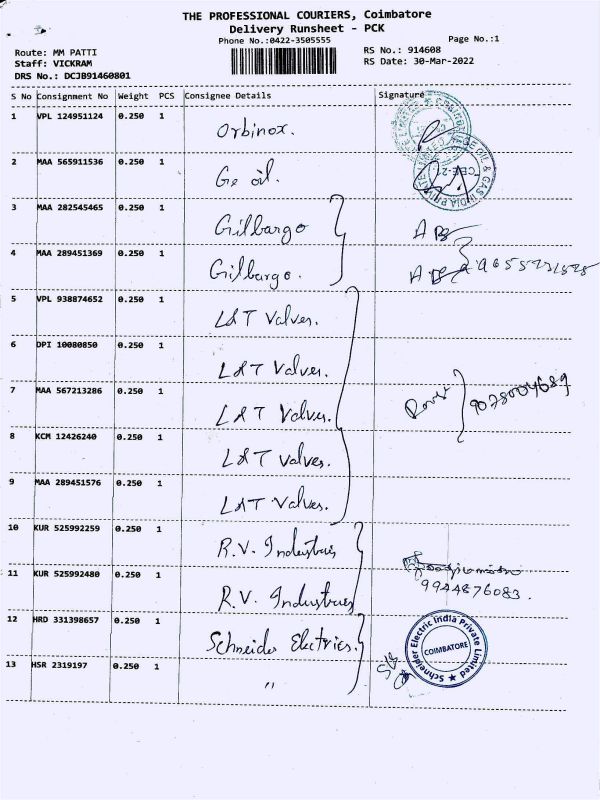 THE PROFESSIONAL COURIERS, Coimbatore
Delivery Runsheet - PCK
Phone No.:0422-3505555
Page No.:1
Route: MM PATTI
RS No.: 914608
Staff: VICKRAM
RS Date: 30-Mar-2022
DRS No.: DCJB91460801
S No Consignment No Weight PCS Consignee Details Signature
1 VPL 124951124 0.250 1 Orbinox.
2 MAA 565911536 0.250 1 Ge oil.
3 MAA 282545465 0.250 1 Gilbargo
4 MAA 289451369 0.250 1 Gilbargo.
5 VPL 938874652 0.250 1 L&T Valves.
6 DPI 10080850 0.250 1 L&T Valves.
7 MAA 567213286 0.250 1 L&T Valves.
8 KCM 12426240 0.250 1 L&T Valves.
9 MAA 289451576 0.250 1 L&T Valves.
10 KUR 525992259 0.250 1 R.V. Industries
11 KUR 525992480 0.250 1 R.V. Industries
9944876083.
12 HRD 331398657 0.250 1 Schneider Electrics.
Schneider Electric India Private Limited
COIMBATORE
13 HSR 2319197 0.250 1 "